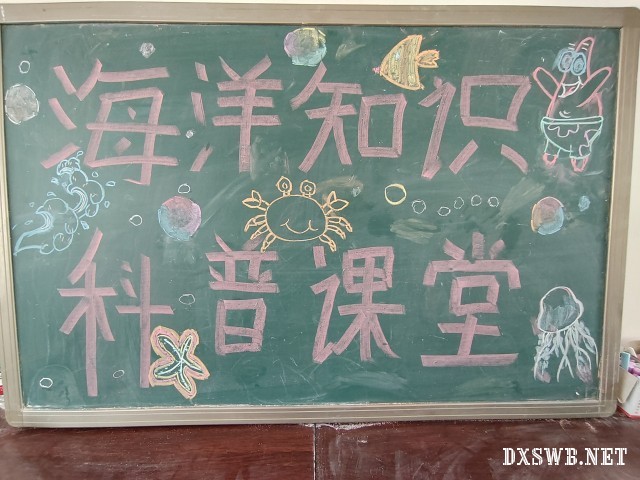 海洋知识
科普课堂
DXSWB.NET